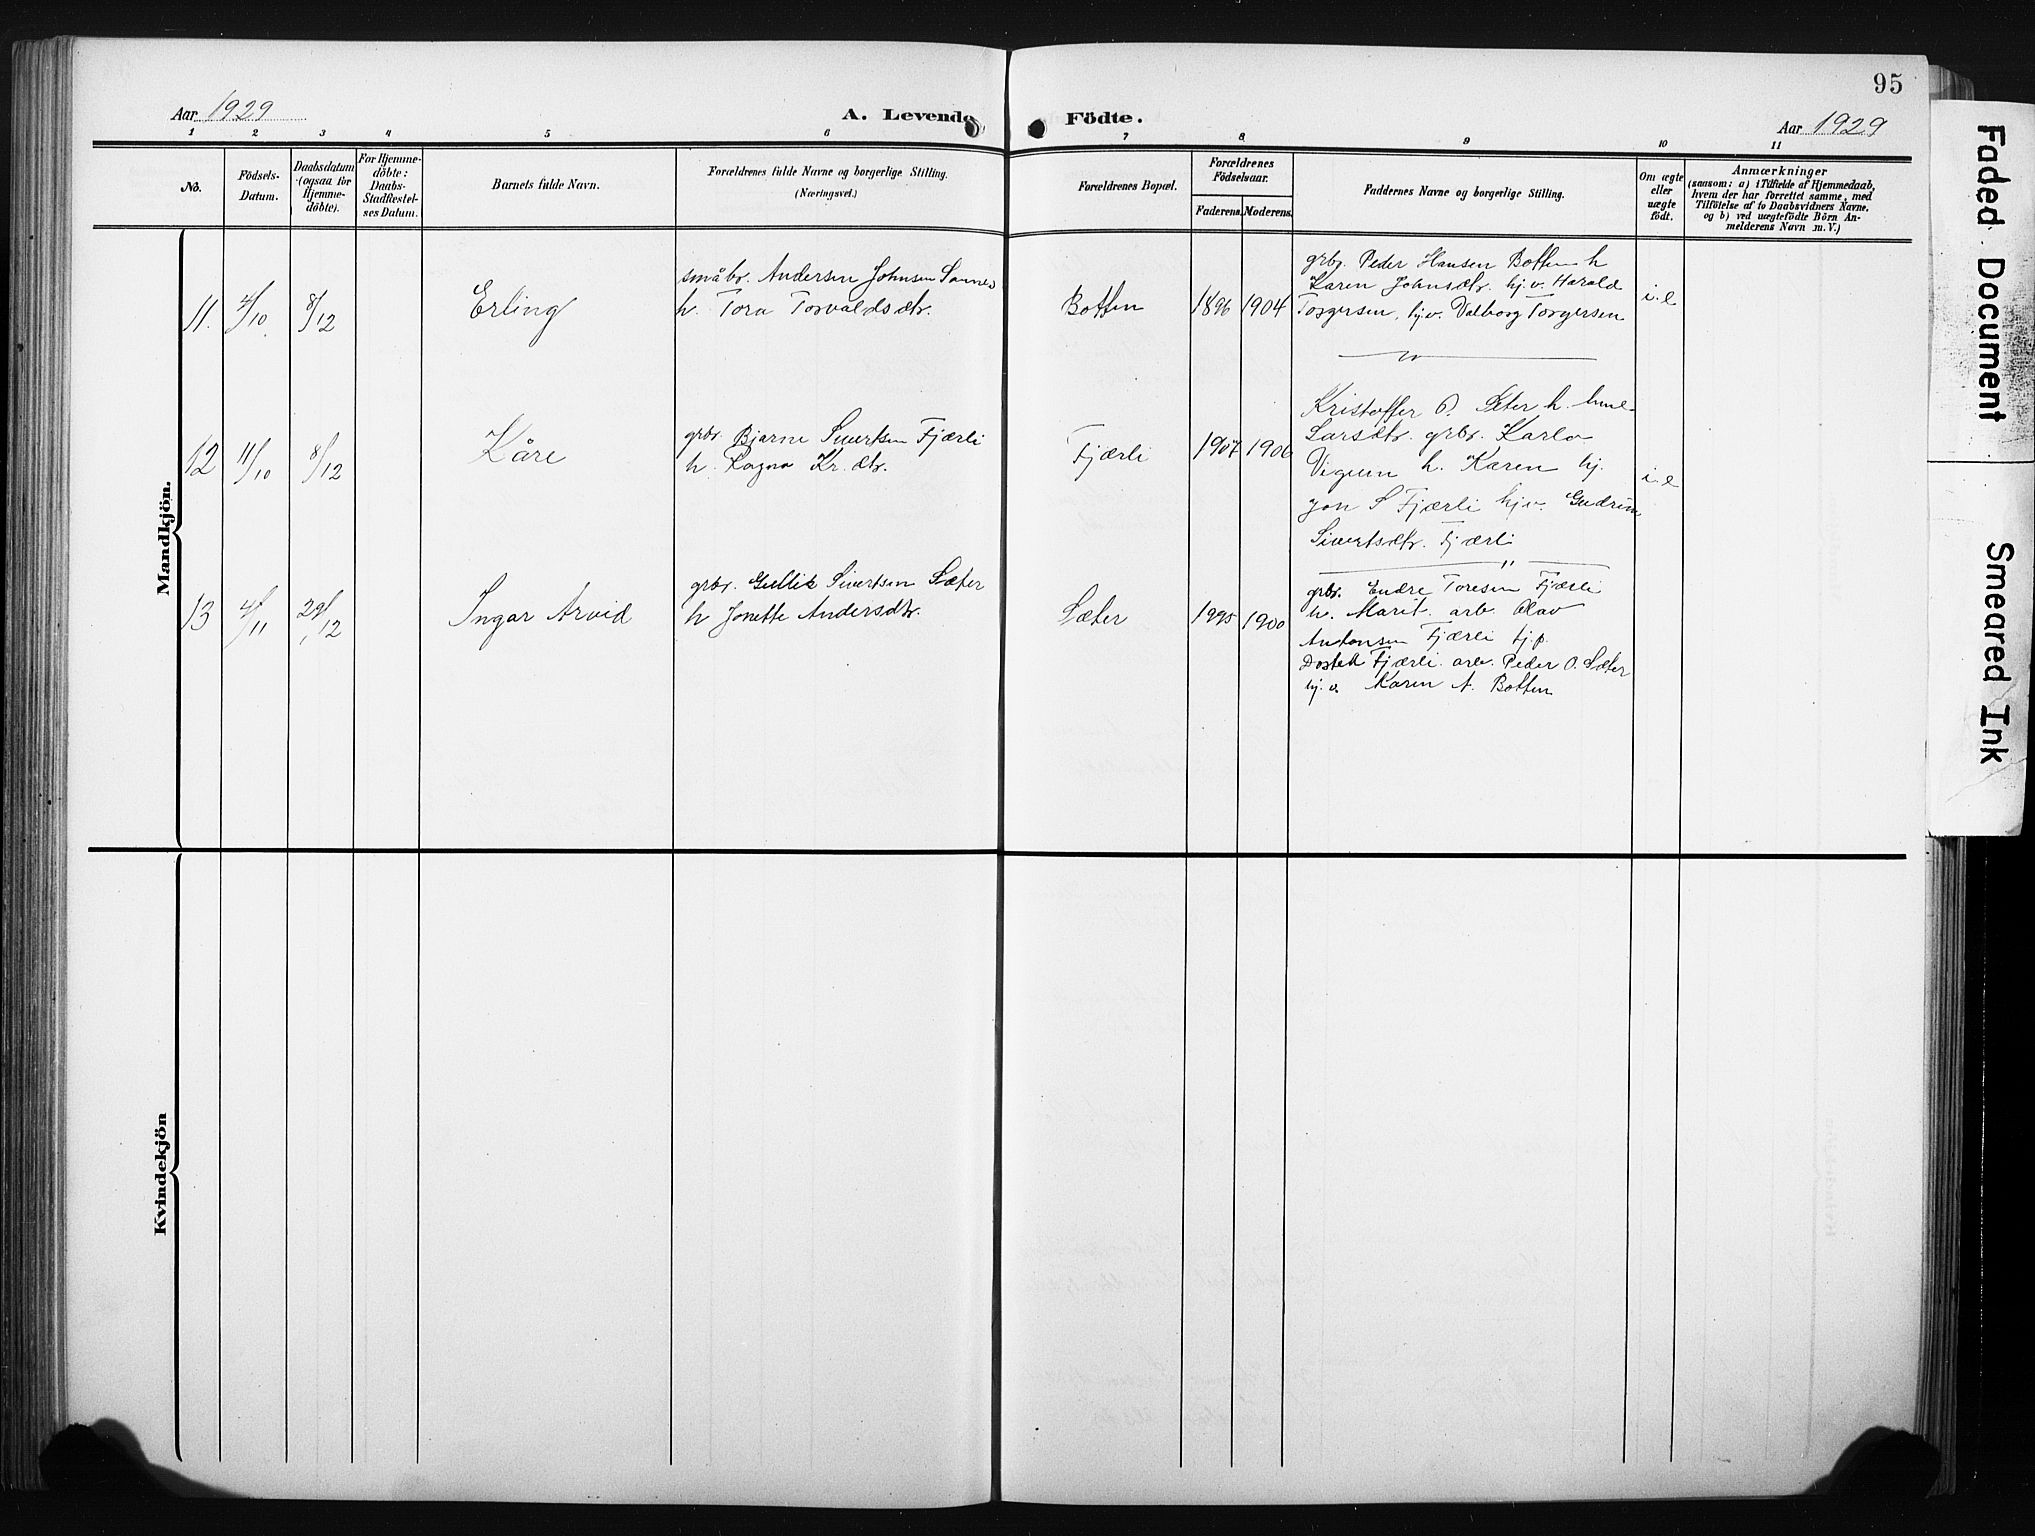 95
Aar 1929
A. Levende
Födte.
Aar 1929
1 2 3 4 5 6 7 8 9 10 11
No.
Födsels-
Datum.
Daabsdatum
(ogsaa for
Hjemme-
döbte).
For Hjemme-
döbte:
Daabs-
Stadfæstel-
ses Datum.
Barnets fulde Navn.
Forældrenes fulde Navne og borgerlige Stilling.
(Næringsvei.)
Forældrenes Bopæl.
Forældrenes
Födselsaar.
Faderens. Moderens.
Faddernes Navne og borgerlige Stilling.
Om ægte
eller
uægte
födt.
Anmærkninger
(saasom: a) i Tilfælde af Hjemmedaab,
hvem der har forrettet samme, med
Tilföielse af to Daabsvidners Navne,
og b) ved uægtefödte Börn An-
melderens Navn m. V.)
Mandkjön.
11. 4/10 8/12 Erling
småbr. Andersen Johnsen
h. Tora Torvaldsdtr.
Botten 1896 1904
grbr. Peder Hansen Botten h
Karen Johnsdtr. hj.v. Harald
Torgersen, hj.v. Valborg Torgersen
i.e
12 11/10 8/12 Kåre
grbr. Bjarne Sivertsen Fjærli
h. Ragna Kr. dtr.
Fjærli 1907 1906
Kristoffer O. Seter h.
Larsdtr. grbr. Karl
Vigum h. Karen hj.
Jon S Fjærli hjv. Gudrun
Sivertsdtr. Fjærli
i.e
13 4/11 29/12 Ingar Arvid
grbr. Gullik Sivertsen Sæter
h Jonette Andersdtr.
Sæter 1895 1900
grbr. Endre Toresen Fjærli
h. Marit. arb. Olav
Antonsen Fjærli tj.p.
Fjærli. arb. Peder O. Sæter
hj.v. Karen A. Botten
Kvindekjön
Faded Document
Smeared Ink